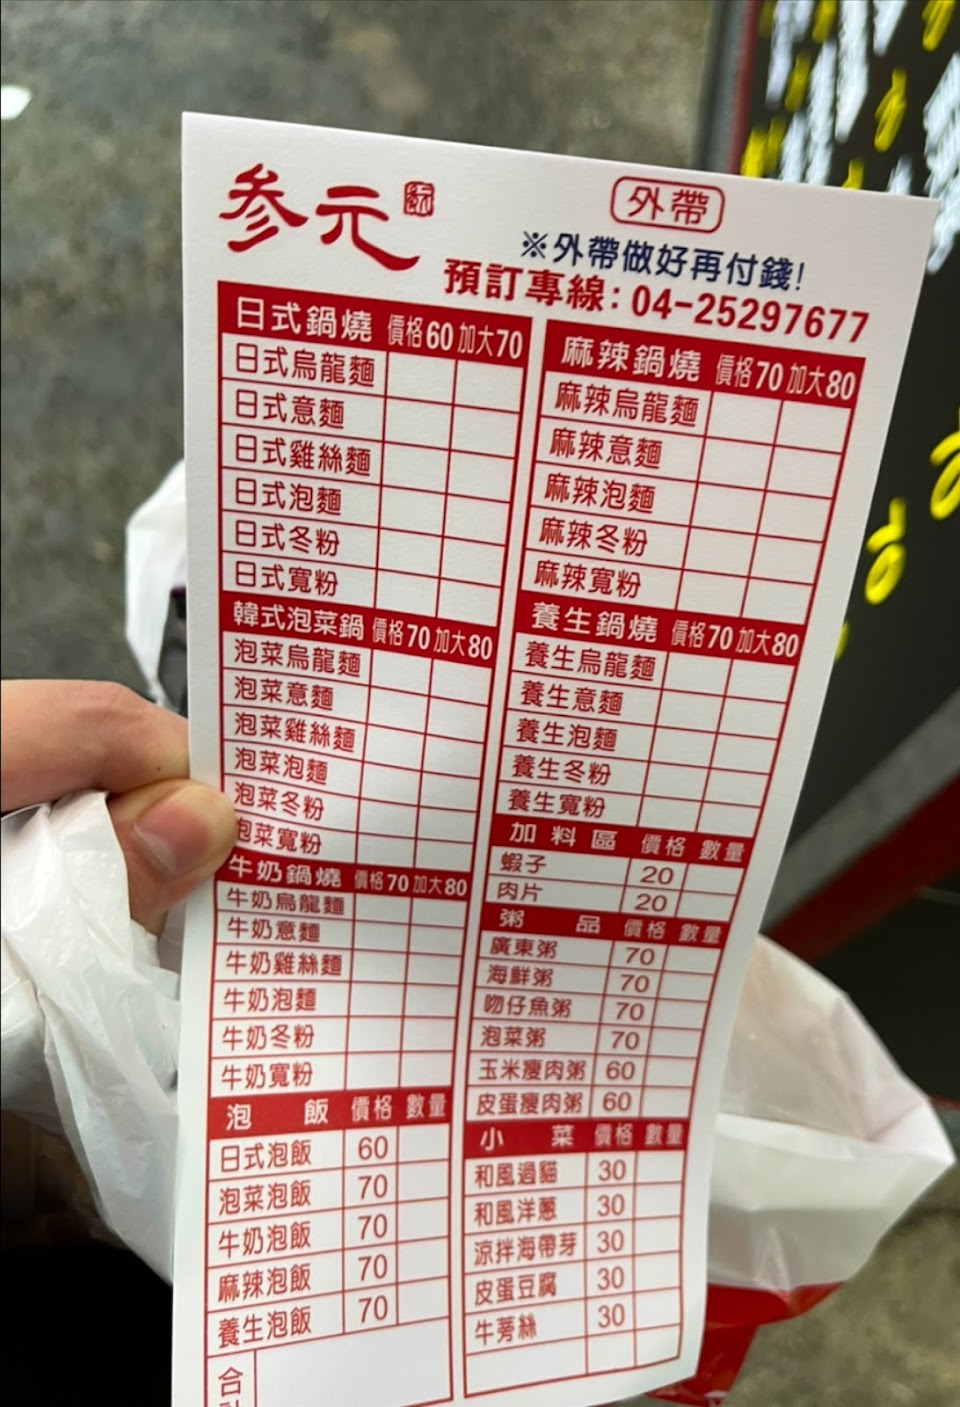 参元
外帶
※外帶做好再付錢!
預訂專線:04-25297677
日式鍋燒 價格60 加大70
日式烏龍麵
日式意麵
日式雞絲麵
日式泡麵
日式冬粉
日式寬粉
韓式泡菜鍋 價格70 加大80
泡菜烏龍麵
泡菜意麵
泡菜雞絲麵
泡菜泡麵
泡菜冬粉
泡菜寬粉
牛奶鍋燒 價格70 加大80
牛奶烏龍麵
牛奶意麵
牛奶雞絲麵
牛奶泡麵
牛奶冬粉
牛奶寬粉
泡飯 價格 數量
日式泡飯 60
泡菜泡飯 70
牛奶泡飯 70
麻辣泡飯 70
養生泡飯 70
合計
麻辣鍋燒 價格70 加大80
麻辣烏龍麵
麻辣意麵
麻辣泡麵
麻辣冬粉
麻辣寬粉
養生鍋燒 價格70 加大80
養生烏龍麵
養生意麵
養生泡麵
養生冬粉
養生寬粉
加料區 價格 數量
蝦子 20
肉片 20
粥品 價格 數量
廣東粥 70
海鮮粥 70
吻仔魚粥 70
泡菜粥 70
玉米瘦肉粥 60
皮蛋瘦肉粥 60
小菜 價格 數量
和風過貓 30
和風洋蔥 30
涼拌海帶芽 30
皮蛋豆腐 30
牛蒡絲 30